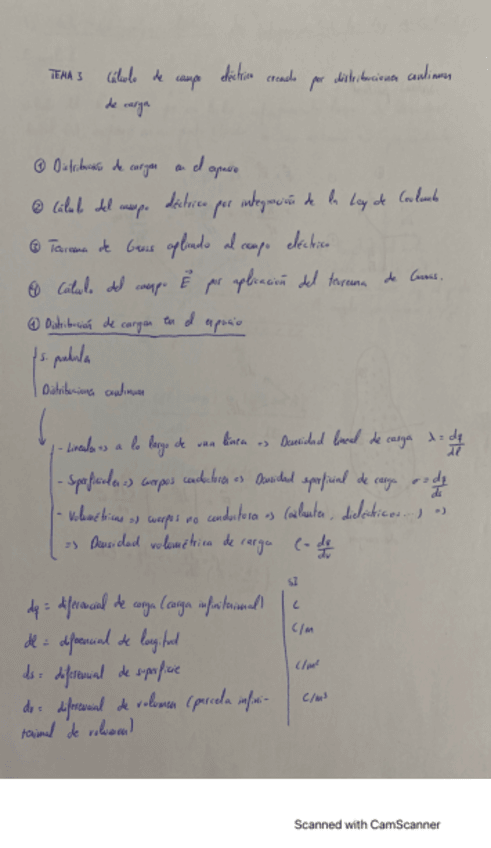 TEMA 3 Cálculo de campo eléctrico creado por distribuciones continuas
de carga
① Distribución de cargas en el espacio
② Cálculo del campo eléctrico por integración de la Ley de Coulomb
③ Teorema de Gauss aplicado al campo eléctrico
④ Cálculo del campo E⃗ por aplicación del teorema de Gauss.
① Distribución de cargas en el espacio
Distribuciones continuas
- Lineales => a lo largo de una línea => Densidad lineal de carga λ = dq/dl
- Superficiales => cuerpos conductores => Densidad superficial de carga σ = dq/ds
- Volumétricas => cuerpos no conductores => (aislantes, dieléctricos...) =>
=> Densidad volumétrica de carga ρ = dq/dv
SI
dq = diferencial de carga (carga infinitesimal) C
dl = diferencial de longitud C/m
ds = diferencial de superficie C/m²
dv = diferencial de volumen (parcela infini- C/m³
tesimal de volumen)
Scanned with CamScanner